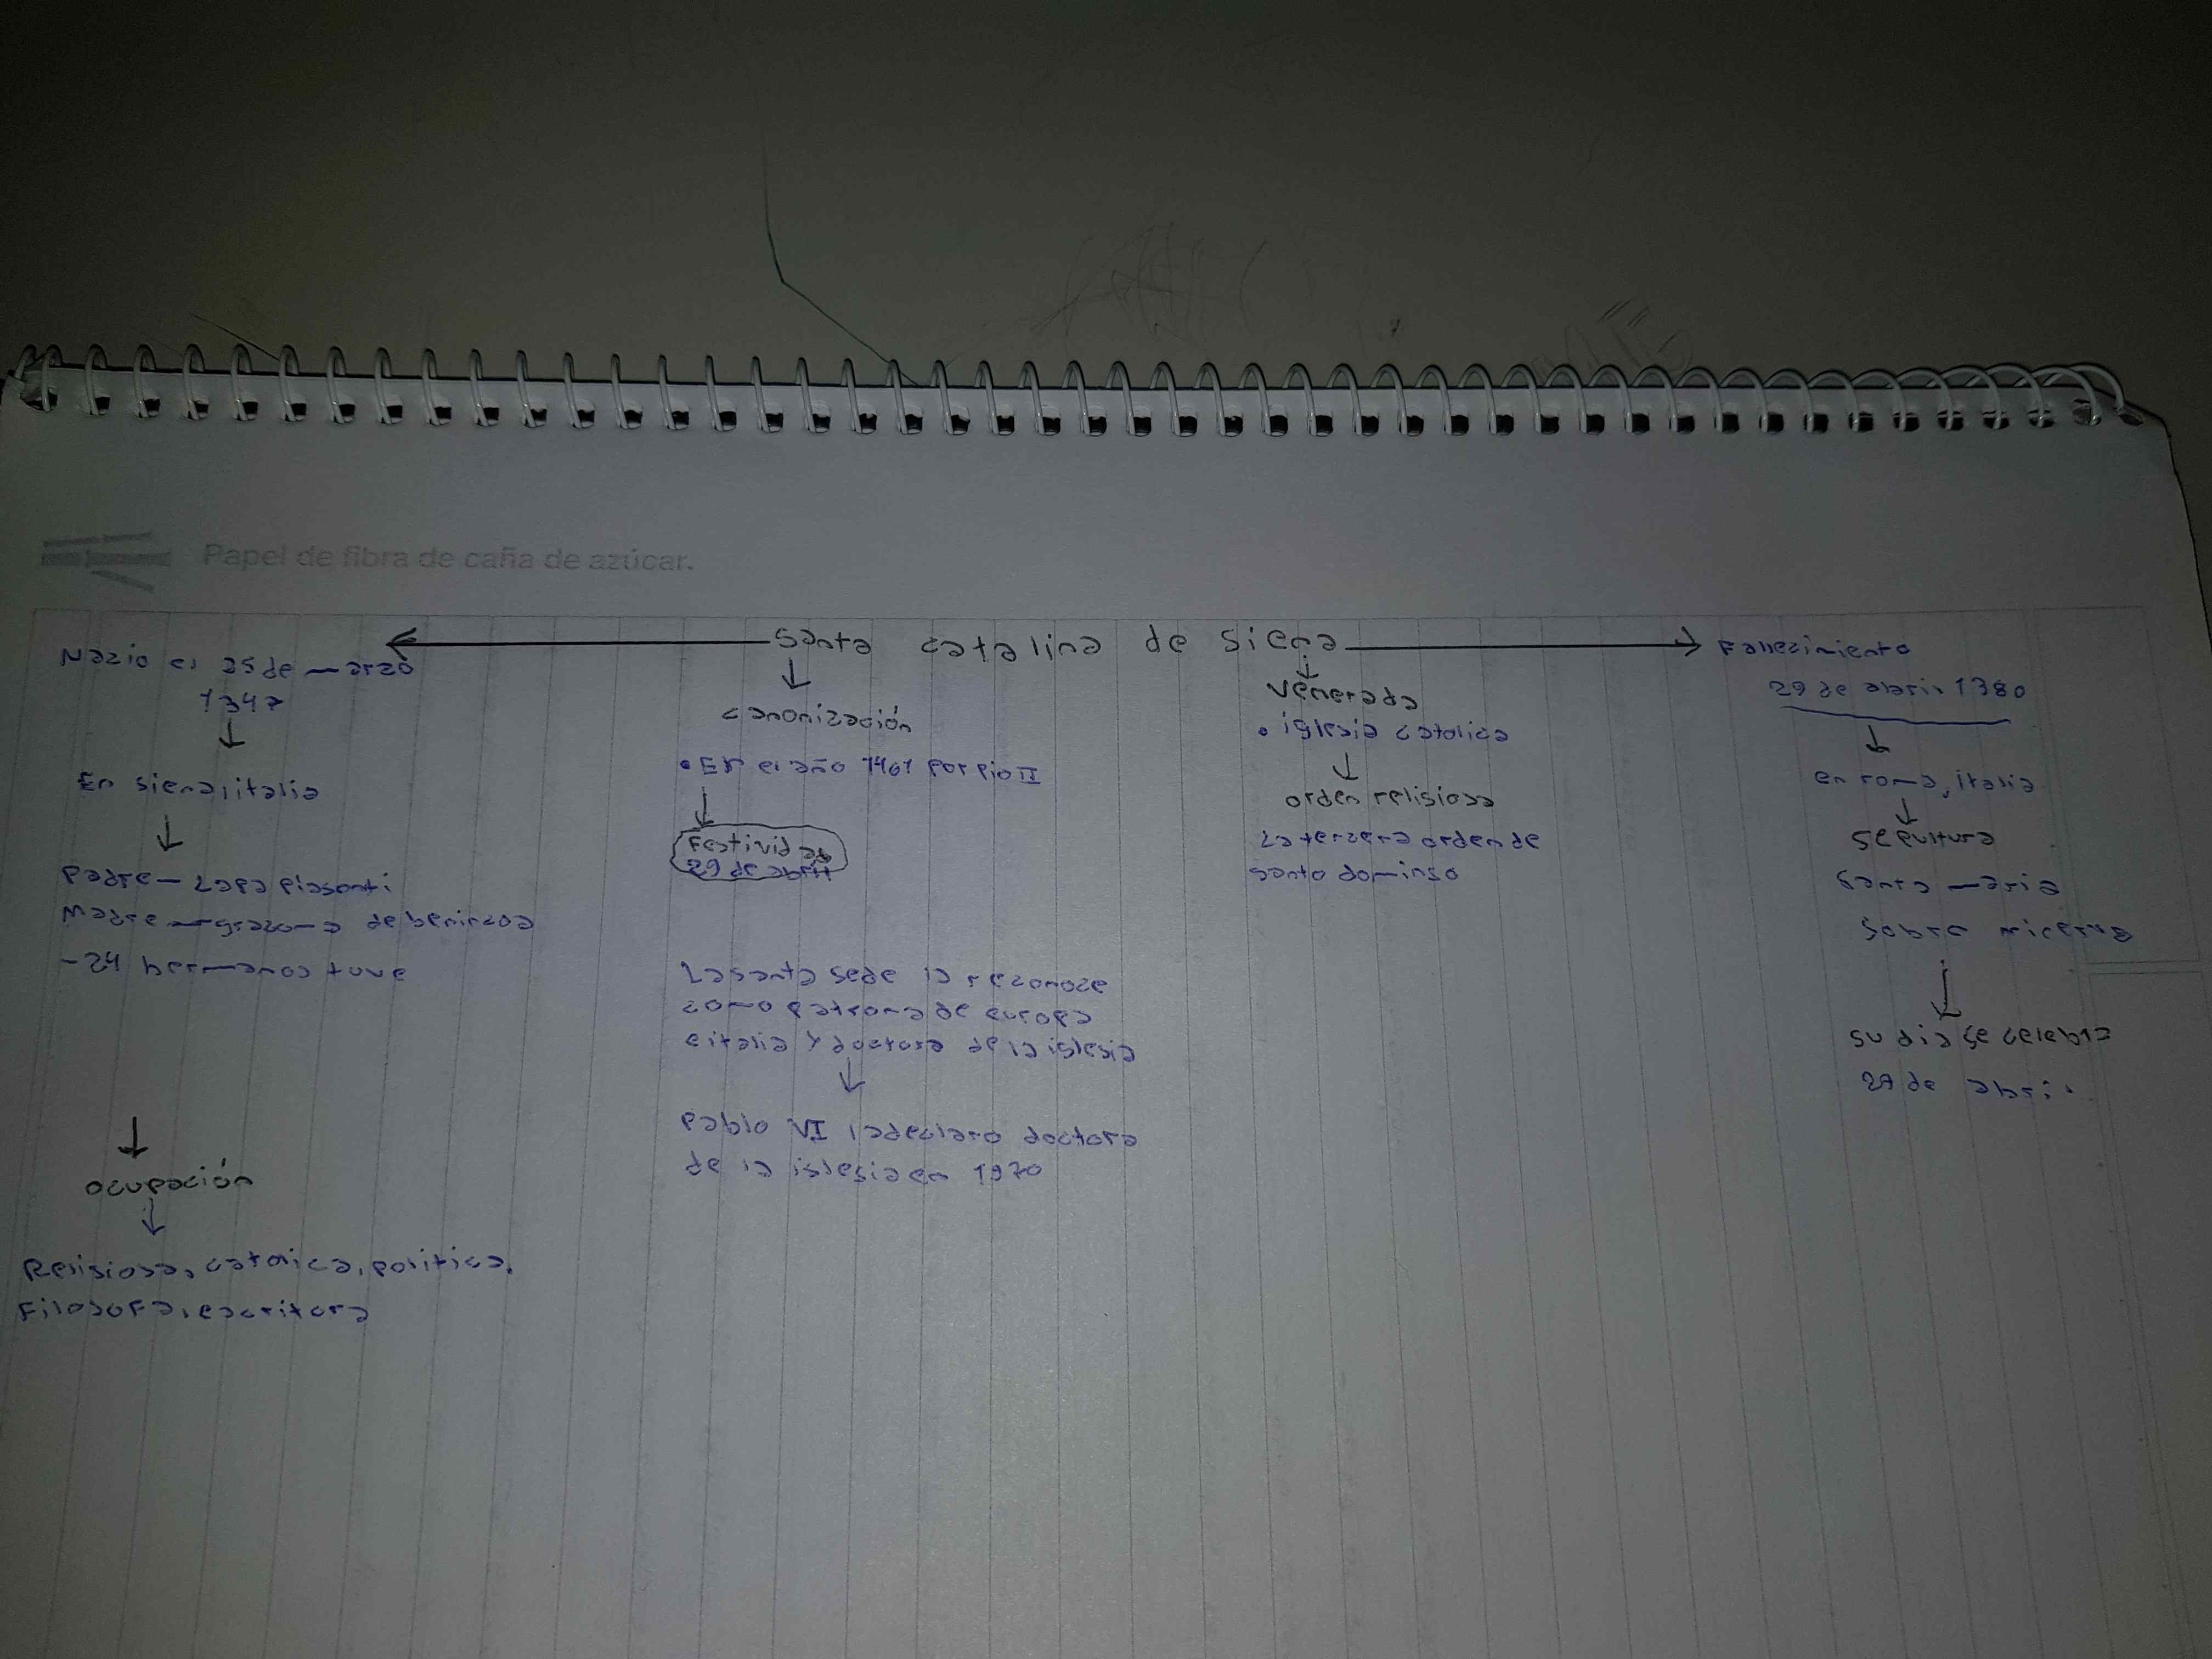 Papel de fibra de caña de azúcar.
Santa catalina de siena
Nazio el 25 de marzo
1347
En siena, italia
Padre - Lapa piasenti
Madre - de beninzoa
- 24 hermanos tuve
ocupación
Religiosa, catolica, politica,
Filosofa, escritora
canonización
• En el año 1461 por pio II
Festividad
29 de abril
La santa sede la reconoze
como patrona de europa
e italia y doctora de la iglesia
Pablo VI la declaro doctora
de la iglesia en 1970
Venerada
• iglesia catolica
orden religiosa
La terzera orden de
santo domingo
Fallezimiento
29 de abril 1380
en roma, italia
sepultura
Santa maria
sobre
su dia se celebra
29 de abril